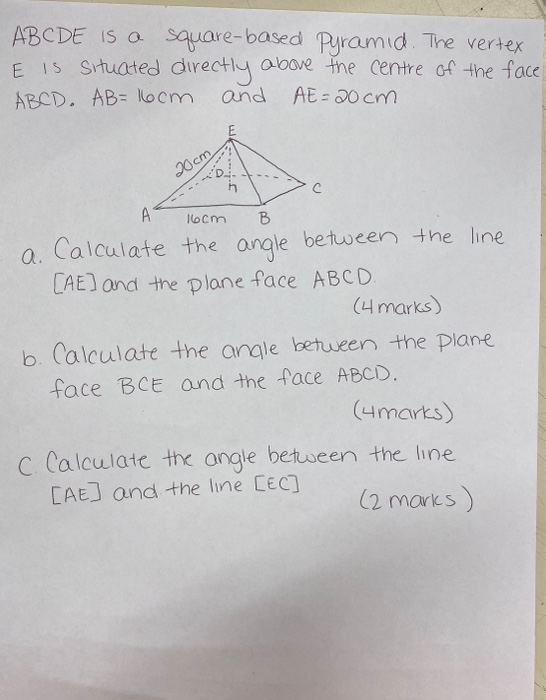 ABCDE is a square-based pyramid. The vertex
E is situated directly above the centre of the face
ABCD. AB= 16cm and AE=20cm
E
20cm
D
h
C
A
16cm
B
a. Calculate the angle between the line
[AE] and the plane face ABCD.
(4 marks)
b. Calculate the angle between the plane
face BCE and the face ABCD.
(4marks)
C. Calculate the angle between the line
[AE] and the line [EC]
(2 marks)